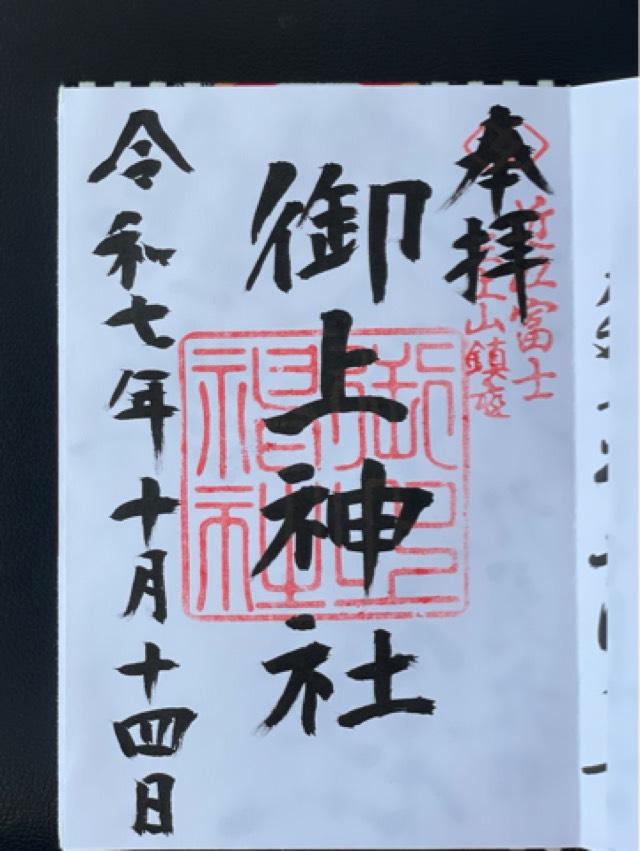 奉拝
近江富士
三上山鎮座
御上神社
御上神社
令和七年十月十四日